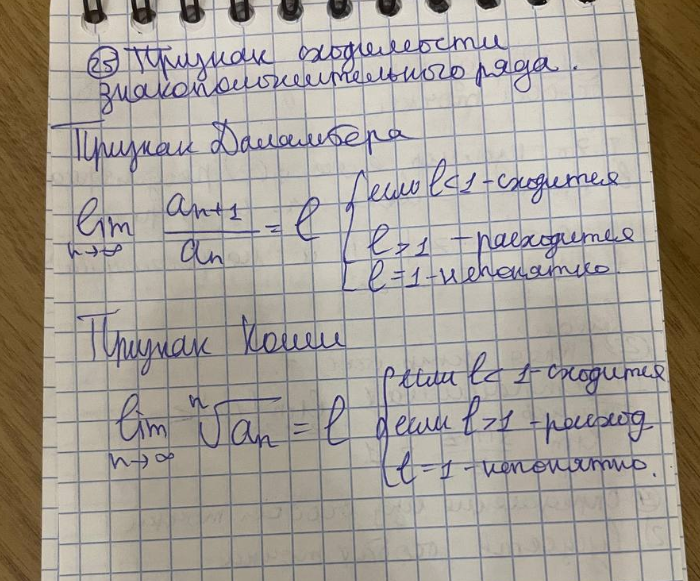 25 Признак сходимости
знакоположительного ряда.
Признак Даламбера
lim n→∞ aₙ₊₁/aₙ = l { если l<1 - сходится
l>1 - расходится
l=1 - непонятно
Признак Коши
lim n→∞ ⁿ√aₙ = l { если l<1 - сходится
если l>1 - расход
l=1 - непонятно.